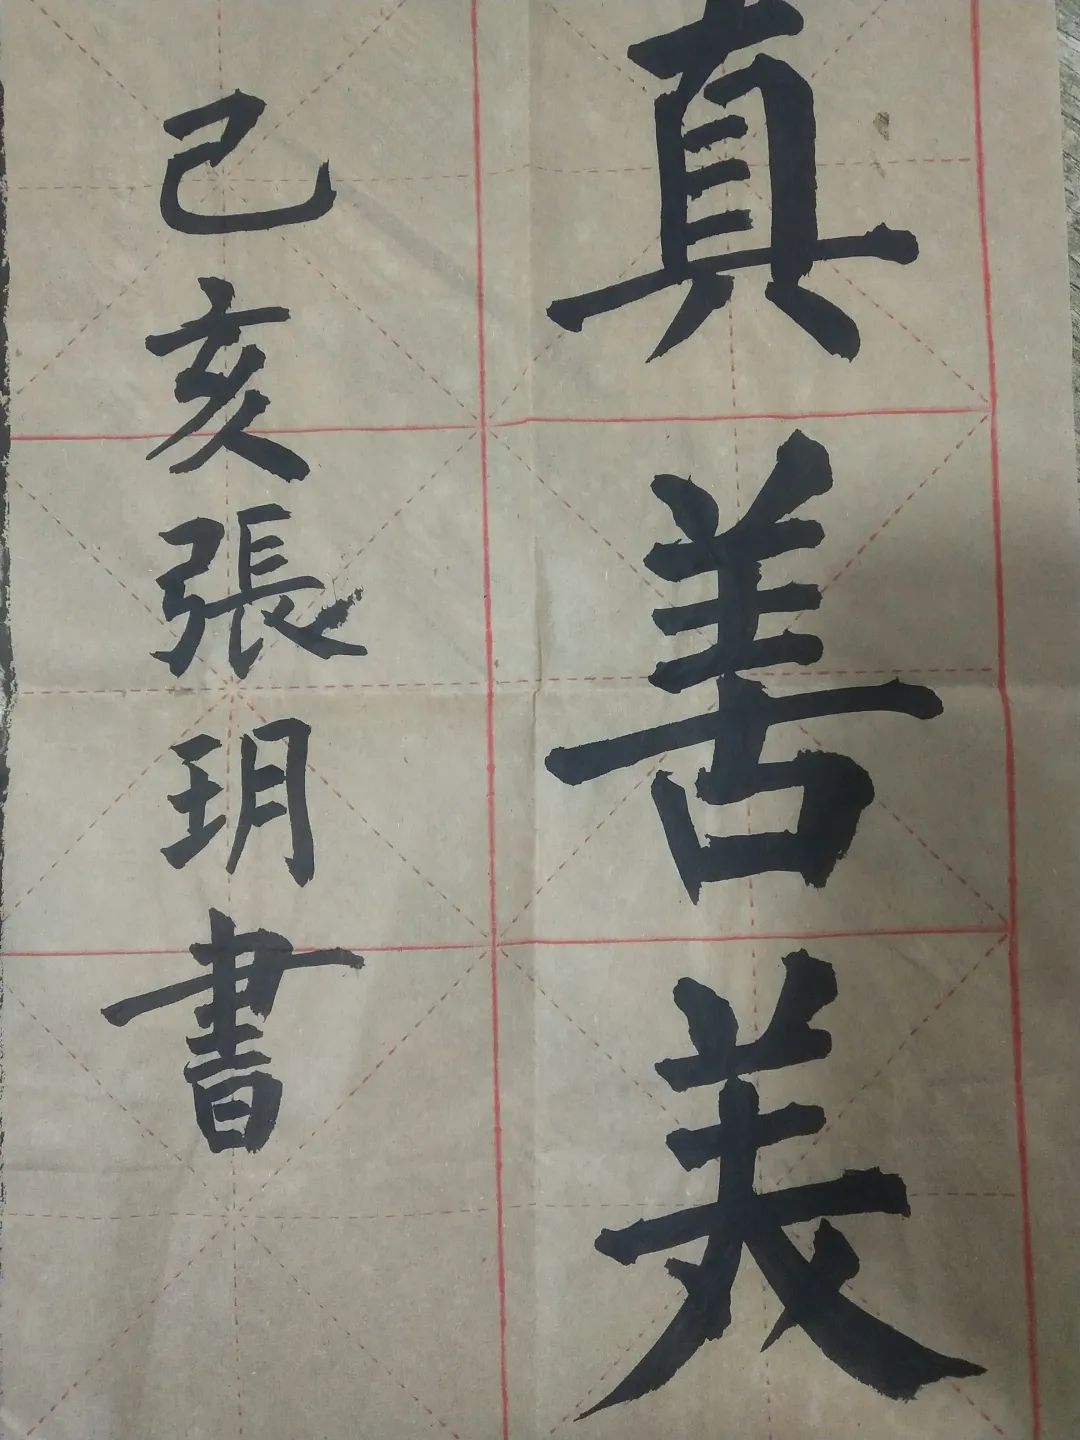 真善美
己亥張玥書